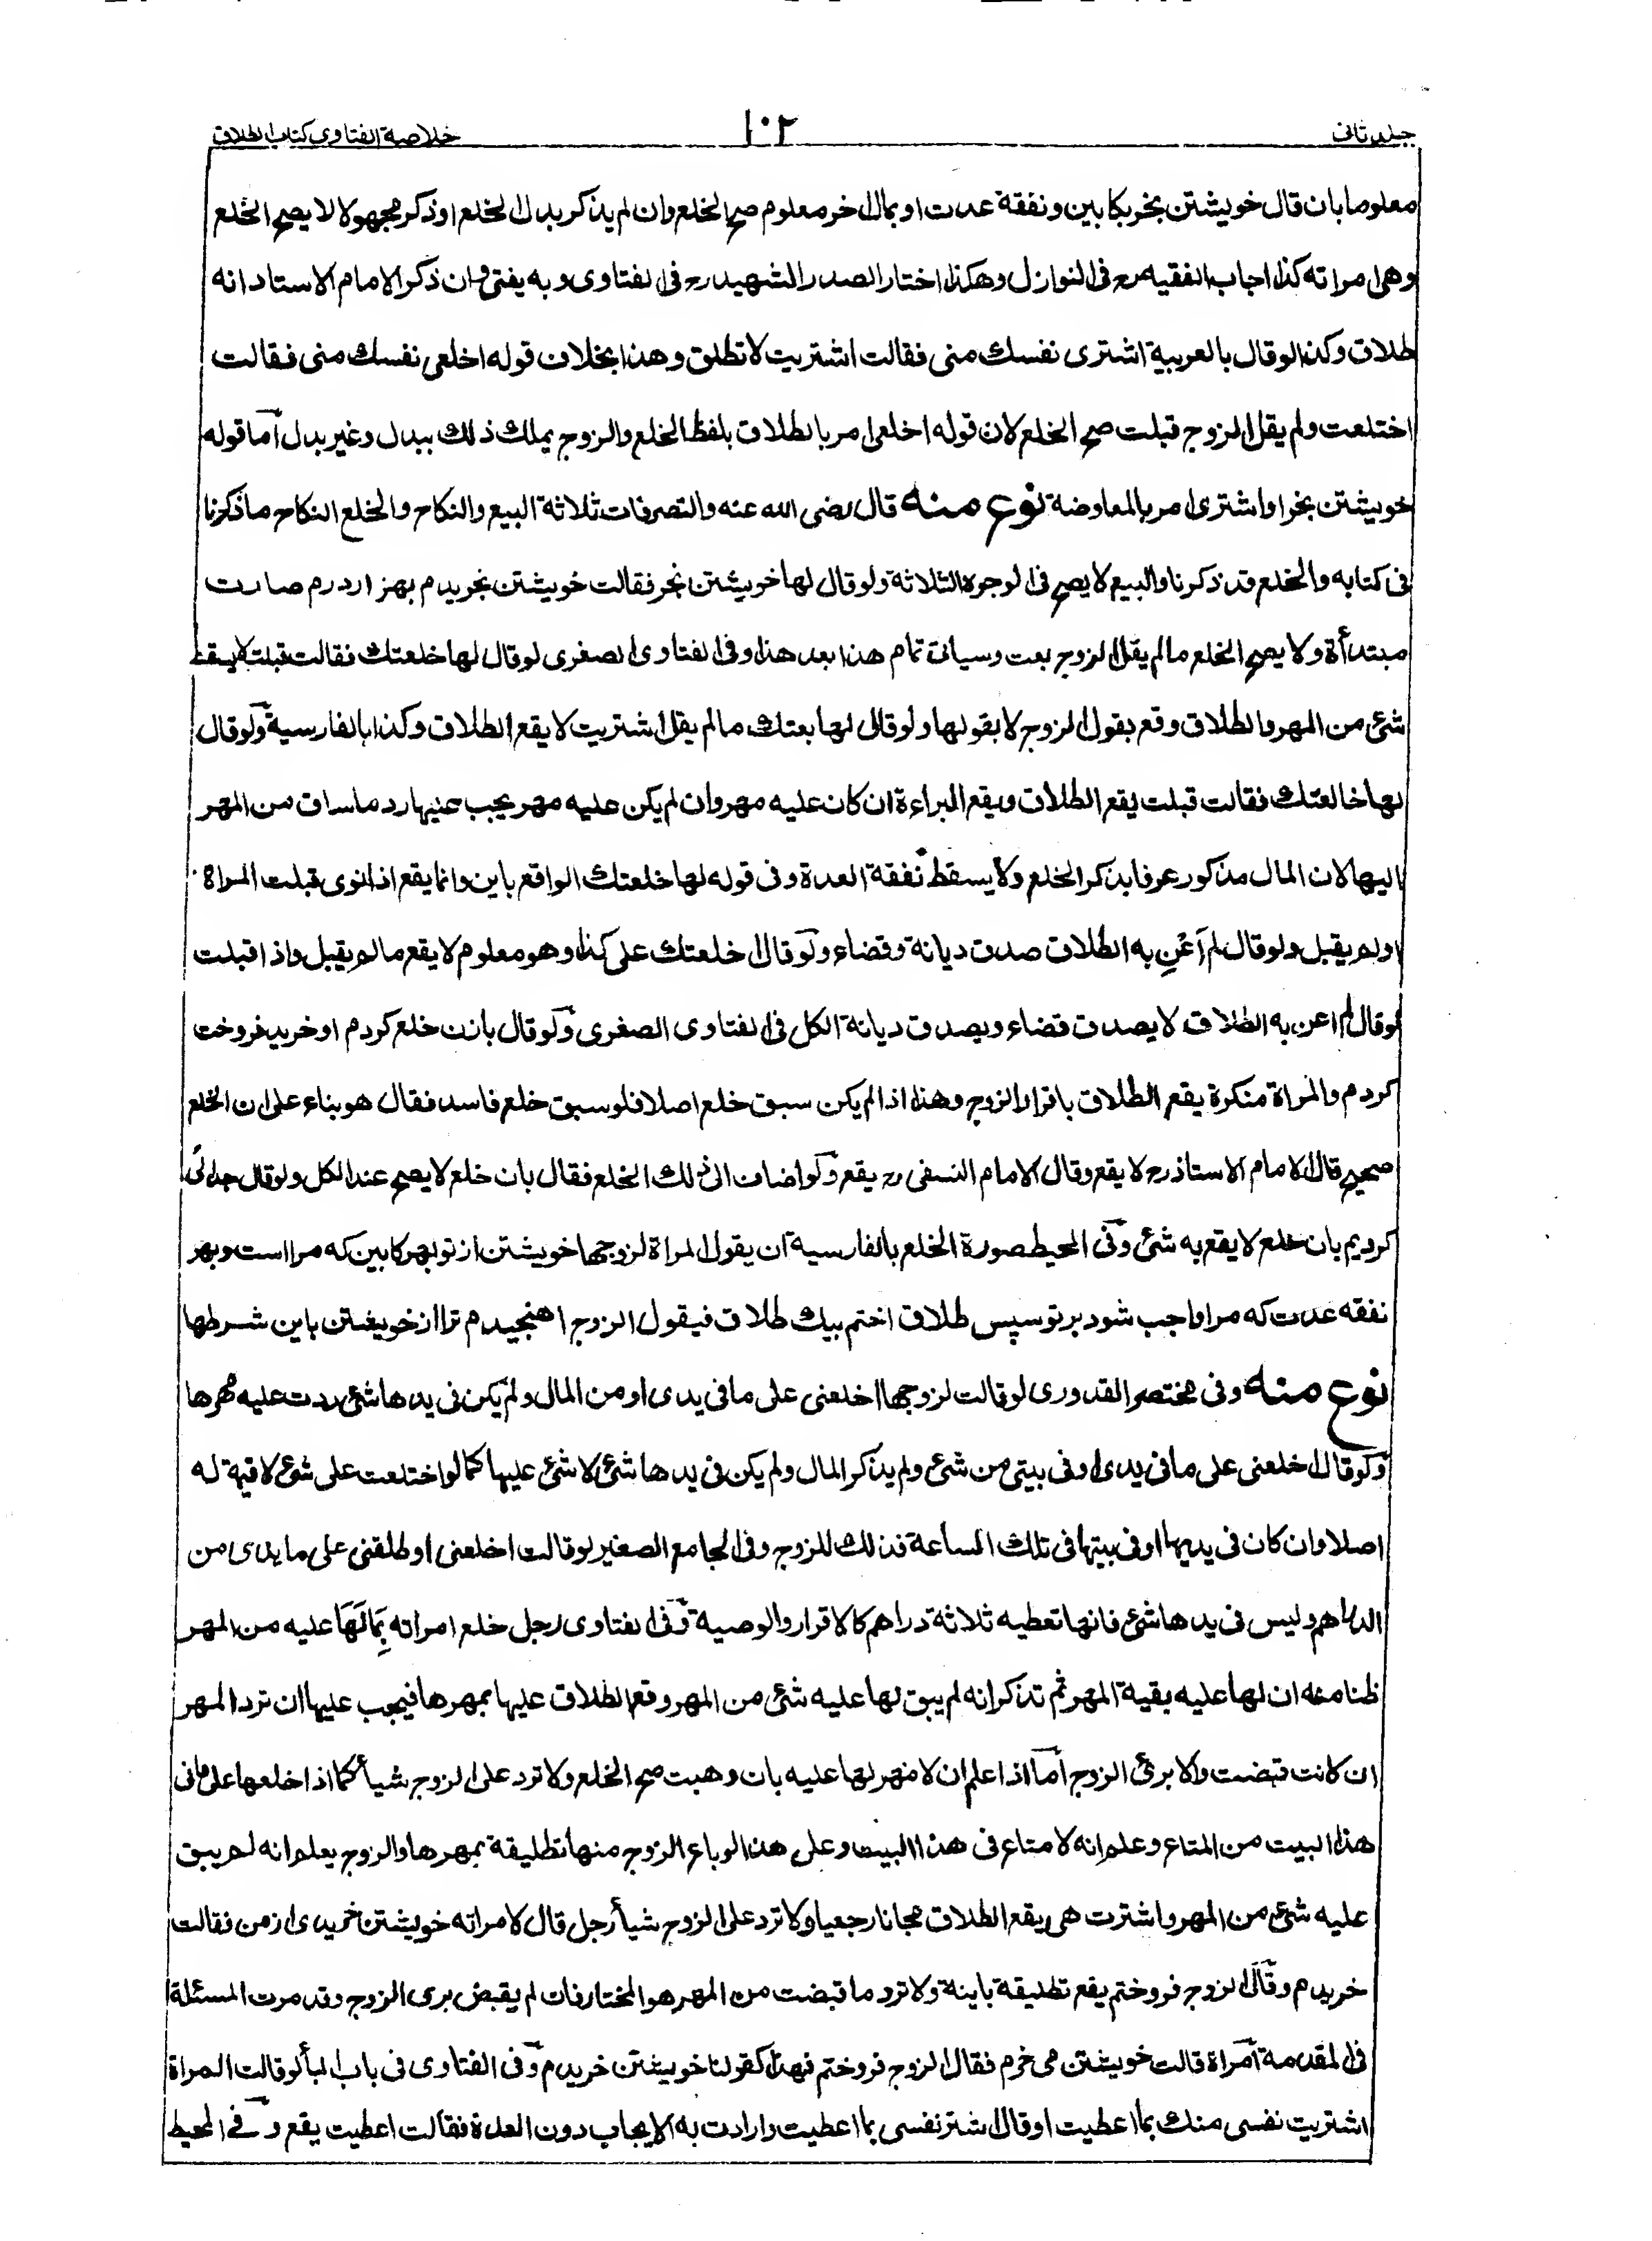 جلد ثانی
١٠٢
خلاصة الفتاوی کتاب الطلاق
معلوما بان قال خویشتن بخر بکابین ونفقة عدت او بمال اخر معلوم صح الخلع وان لم یذکر بدل الخلع او ذکر مجهولا لا یصح الخلع
وهی امراته کذا اجاب الفقیه رح فی النوازل وهکذا اختار الصدر الشهید رح فی الفتاوی وبه یفتی وان ذکر الامام الاستاد انه
طلاق وکذا لو قال بالعربیة اشتری نفسك منی فقالت اشتریت لا تطلق وهذا بخلاف قوله اخلعی نفسك منی فقالت
اختلعت ولم یقل الزوج قبلت صح الخلع لان قوله اخلعی امر بالطلاق بلفظ الخلع والزوج یملك ذلك ببدل وغیر بدل اما قوله
خویشتن بخر او اشتری امر بالمعاوضة نوع منه قال رضی الله عنه والتصرفات ثلاثة البیع والنکاح والخلع النکاح ما ذکرنا
فی کتابه والخلع قد ذکرنا والبیع لا یصح فی الوجوه الثلاثة ولو قال لها خویشتن بخر فقالت خویشتن بخریدم بهزار درم صارت
مبتدأة ولا یصح الخلع ما لم یقل الزوج بعت وسیاتی تمام هذا بعد هذا وفی الفتاوی الصغری لو قال لها خلعتك فقالت قبلت لا یسقط
شئ من المهر والطلاق وقع بقول الزوج لا بقولها ولو قال لها بعتك ما لم یقل اشتریت لا یقع الطلاق وکذا بالفارسیة ولو قال
لها خالعتك فقالت قبلت یقع الطلاق ویقع البراءة ان کان علیه مهر وان لم یکن علیه مهر یجب علیها رد ما ساق من المهر
الیها لان المال مذکور عرفا بذکر الخلع ولا یسقط نفقة العدة وفی قوله لها خلعتك الواقع باین وانما یقع اذا نوی قبلت المراة
او لم یقبل ولو قال لم أعنِ به الطلاق صدق دیانة وقضاء ولو قال خلعتك علی کذا وهو معلوم لا یقع ما لم یقبل واذا قبلت
لو قال لم اعن به الطلاق لا یصدق قضاء ویصدق دیانة الکل فی الفتاوی الصغری ولو قال بازن خلع کردم او خرید فروخت
کردم والمراة منکرة یقع الطلاق باقرار الزوج وهذا اذا لم یکن سبق خلع اصلا فلو سبق خلع فاسد فقال هو بناء علی ان الخلع
صحیح قال الامام الاستاذ رح لا یقع وقال الامام النسفی رح یقع ولو اضاف الی ذلك الخلع فقال بان خلع لا یصح عند الکل ولو قال جدائی
کردیم بان خلع لا یقع به شئ وفی المحیط صورة الخلع بالفارسیة ان یقول المراة لزوجها خویشتن از تو بهر کابین که مرا است وبهر
نفقه عدت که مرا واجب شود بر تو سپس طلاق اختم بیك طلاق فیقول الزوج اهنجیدم ترا از خویشتن باین شرطها
نوع منه وفی مختصر القدوری لو قالت لزوجها اخلعنی علی ما فی یدی او من المال ولم یکن فی یدها شئ ردت علیه مهرها
ولو قال اخلعنی علی ما فی یدی او فی بیتی من شئ ولم یذکر المال ولم یکن فی یدها شئ لا شئ علیها کما لو اختلعت علی شئ لا قیمة له
اصلا وان کان فی یدیها او فی بیتها فی تلك الساعة فذلك للزوج وفی الجامع الصغیر لو قالت اخلعنی او طلقنی علی ما یدی من
الدراهم ولیس فی یدها شئ فانها تعطیه ثلاثة دراهم کالاقرار والوصیة وفی الفتاوی رجل خلع امراته بِمَا لَهَا علیه من المهر
ظنا منه ان لها علیه بقیة المهر ثم تذکر انه لم یبق لها علیه شئ من المهر وقع الطلاق علیها بمهرها فیجب علیها ان ترد المهر
ان کانت قبضت والا برئ الزوج أما اذا علم ان لا مهر لها علیه بان وهبت صح الخلع ولا ترد علی الزوج شیأ کما اذا خلعها علی ما فی
هذا البیت من المتاع وعلم انه لا متاع فی هذا البیت وعلی هذا لو باع الزوج منها تطلیقة بمهرها والزوج یعلم انه لم یبق
علیه شئ من المهر واشترت هی یقع الطلاق مجانا رجعیا ولا ترد علی الزوج شیأ رجل قال لامراته خویشتن خریدی از من فقالت
خریدم وقال الزوج فروختم یقع تطلیقة باینة ولا ترد ما قبضت من المهر هو المختار فان لم یقبض بری الزوج وقد مرت المسئلة
فی المقدمة امراة قالت خویشتن می خرم فقال الزوج فروختم فهذا کقولنا خویشتن خریدم وفی الفتاوی فی باب البأ لو قالت المراة
اشتریت نفسی منك بما اعطیت او قال شتر نفسی بما اعطیت وارادت به الایجاب دون العدة فقالت اعطیت یقع وفی المحیط